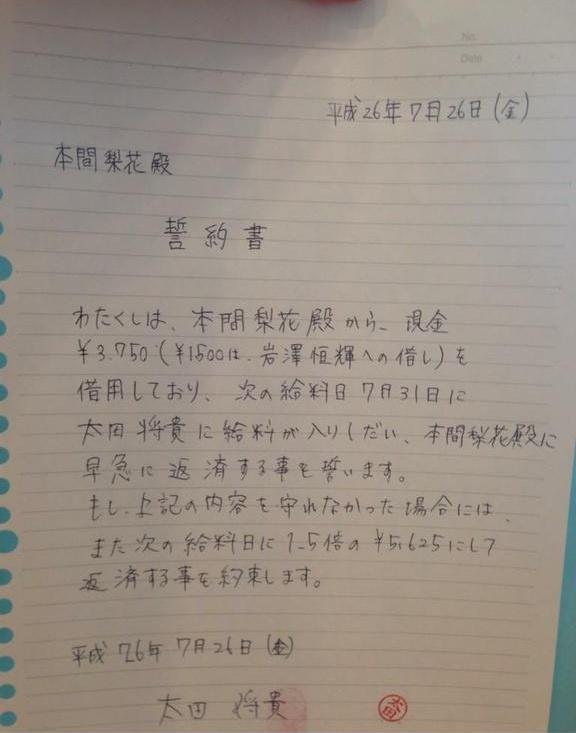 No.
Date
平成26年7月26日(金)
本間梨花殿
誓約書
わたくしは、本間梨花殿から、現金
¥3.750(¥1500は、岩澤恒輝への借し)を
借用しており、次の給料日7月31日に
太田将貴に給料が入りしだい、本間梨花殿に
早急に返済する事を誓います。
もし、上記の内容を守れなかった場合には、
また次の給料日に1.5倍の¥5.625にして
返済する事を約束します。
平成26年7月26日(金)
太田 将貴
太田